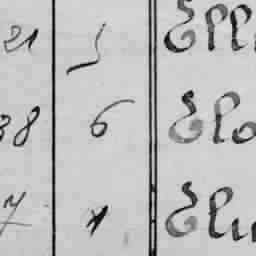 21 5 Ell
38 6 Elo
7 1 Elu